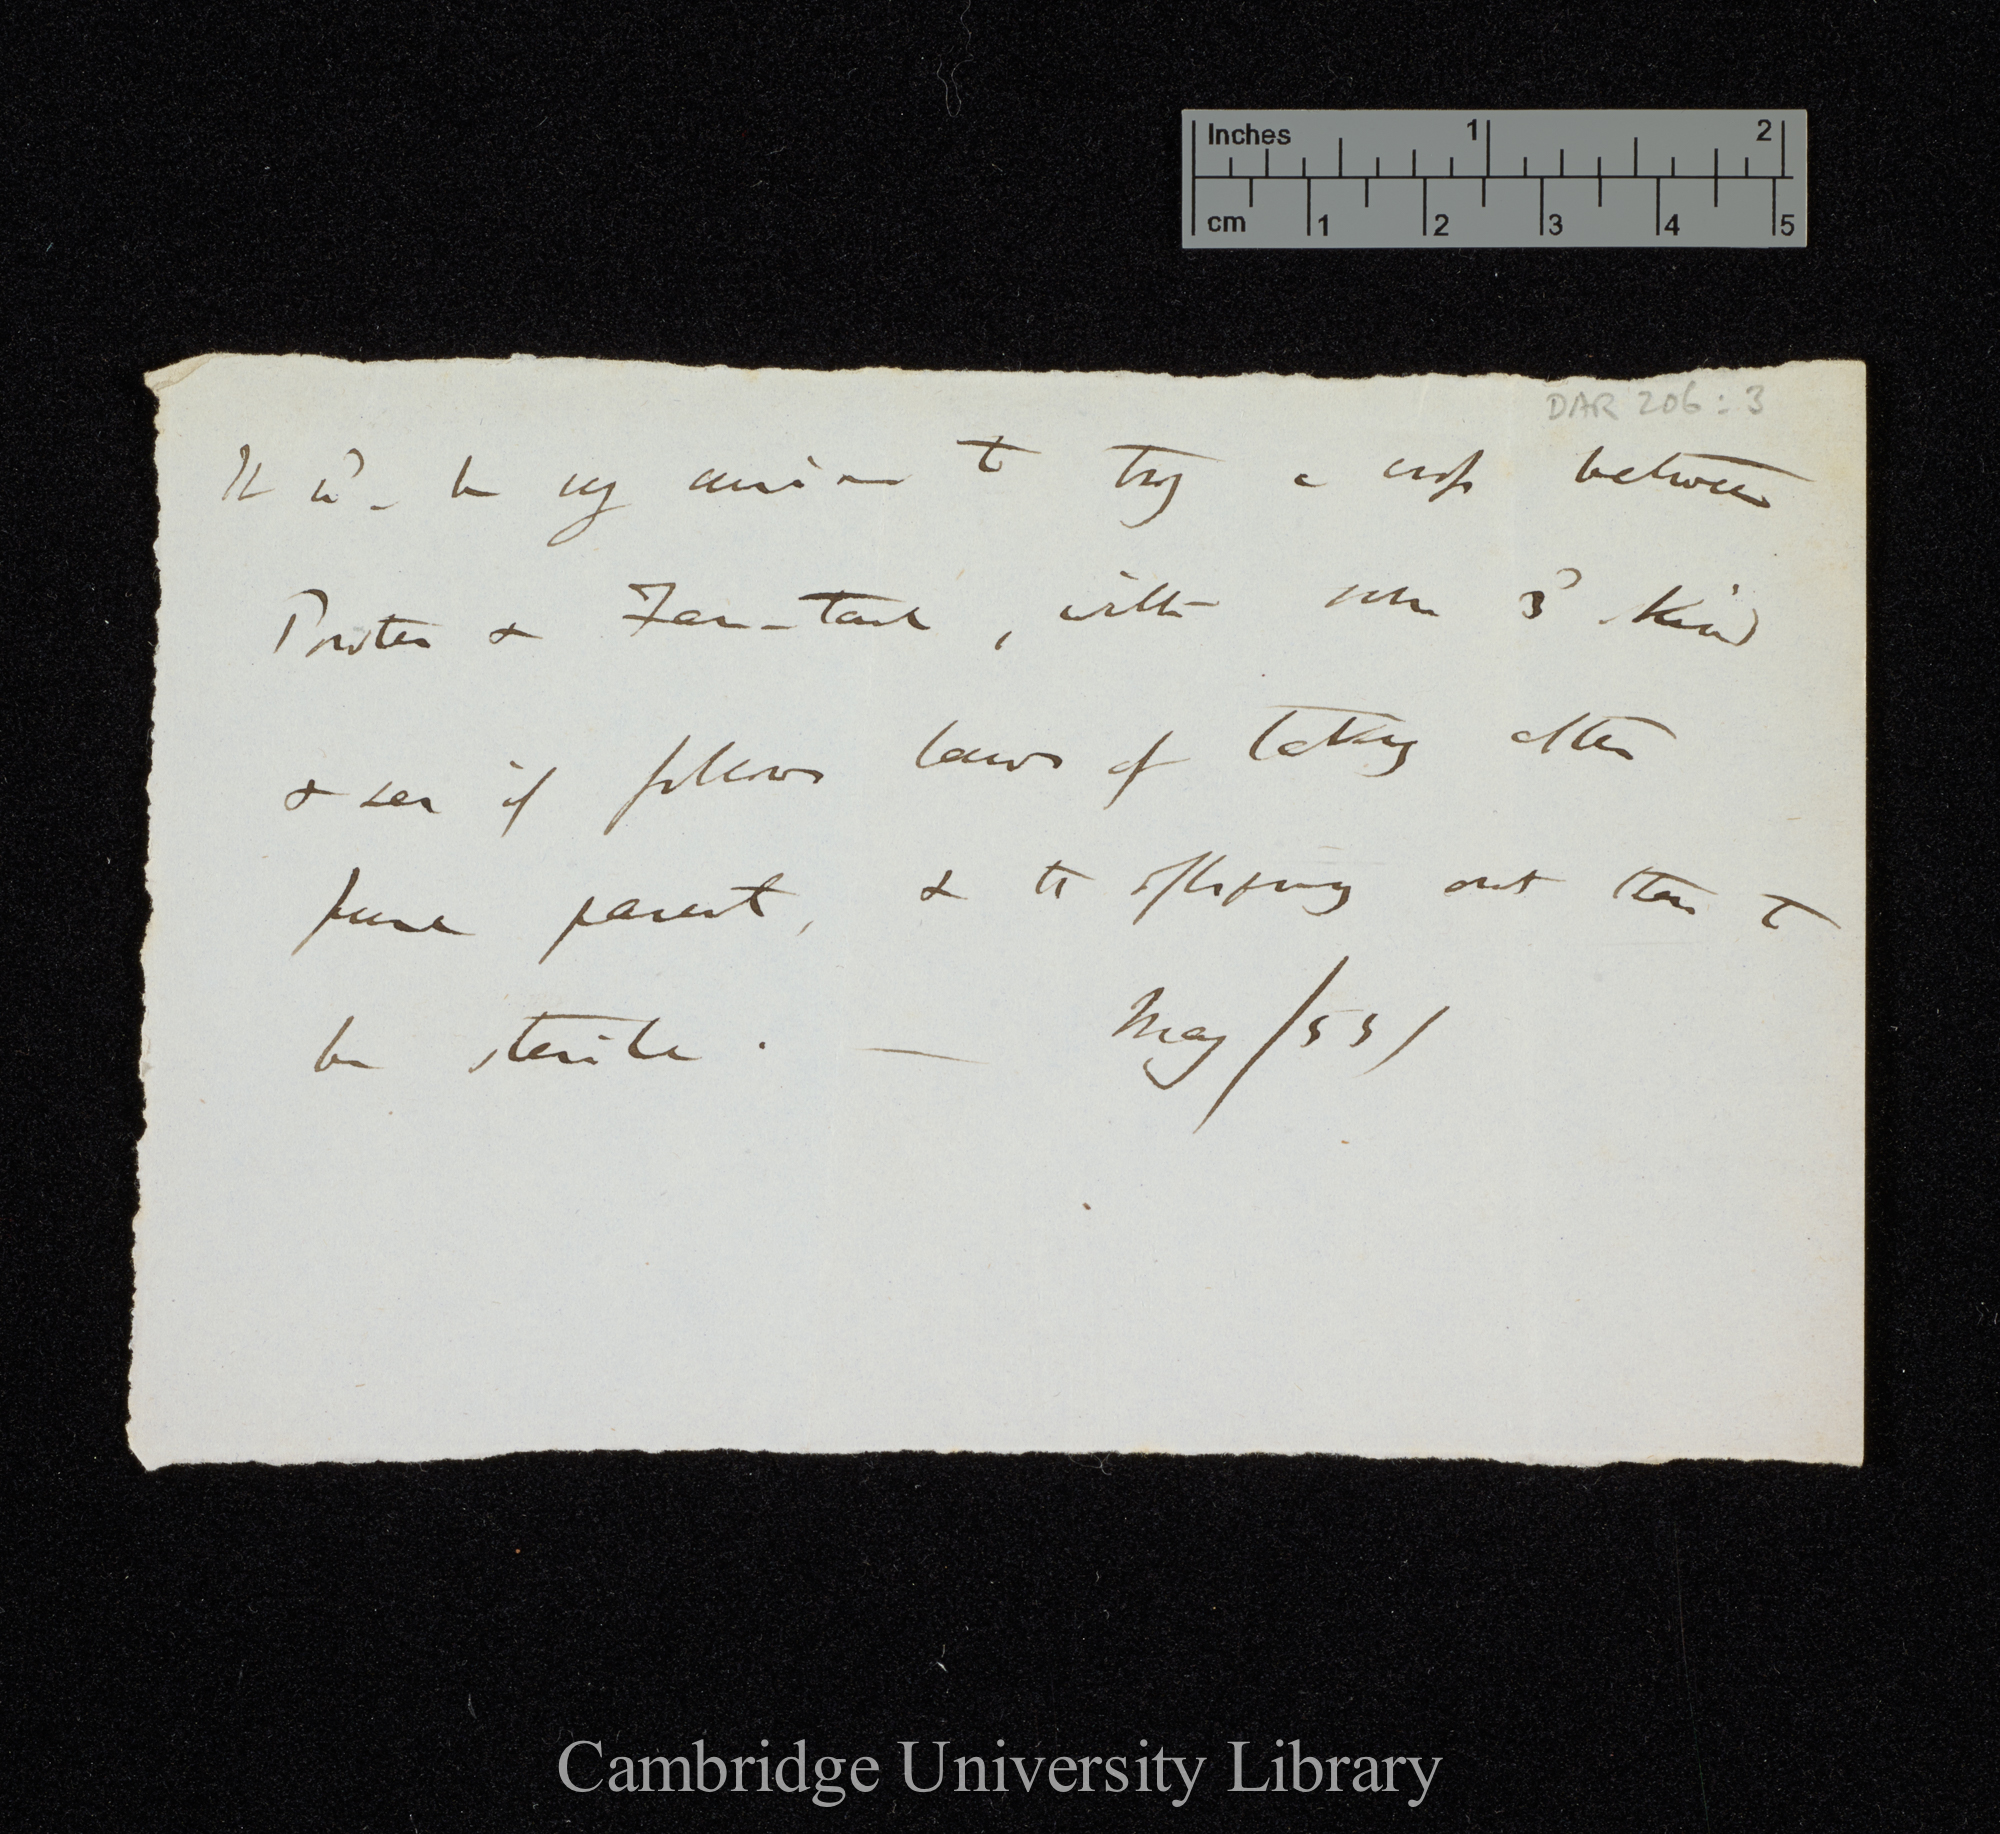 Inches 1 2
cm 1 2 3 4 5
DAR 206:3
It wd. be very curious to try a cross between
Pouter & Fan-tail, with some 3d kind
& see if follows laws of taking after
pure parent, & the offspring ought then to
be sterile. — May/55/
Cambridge University Library